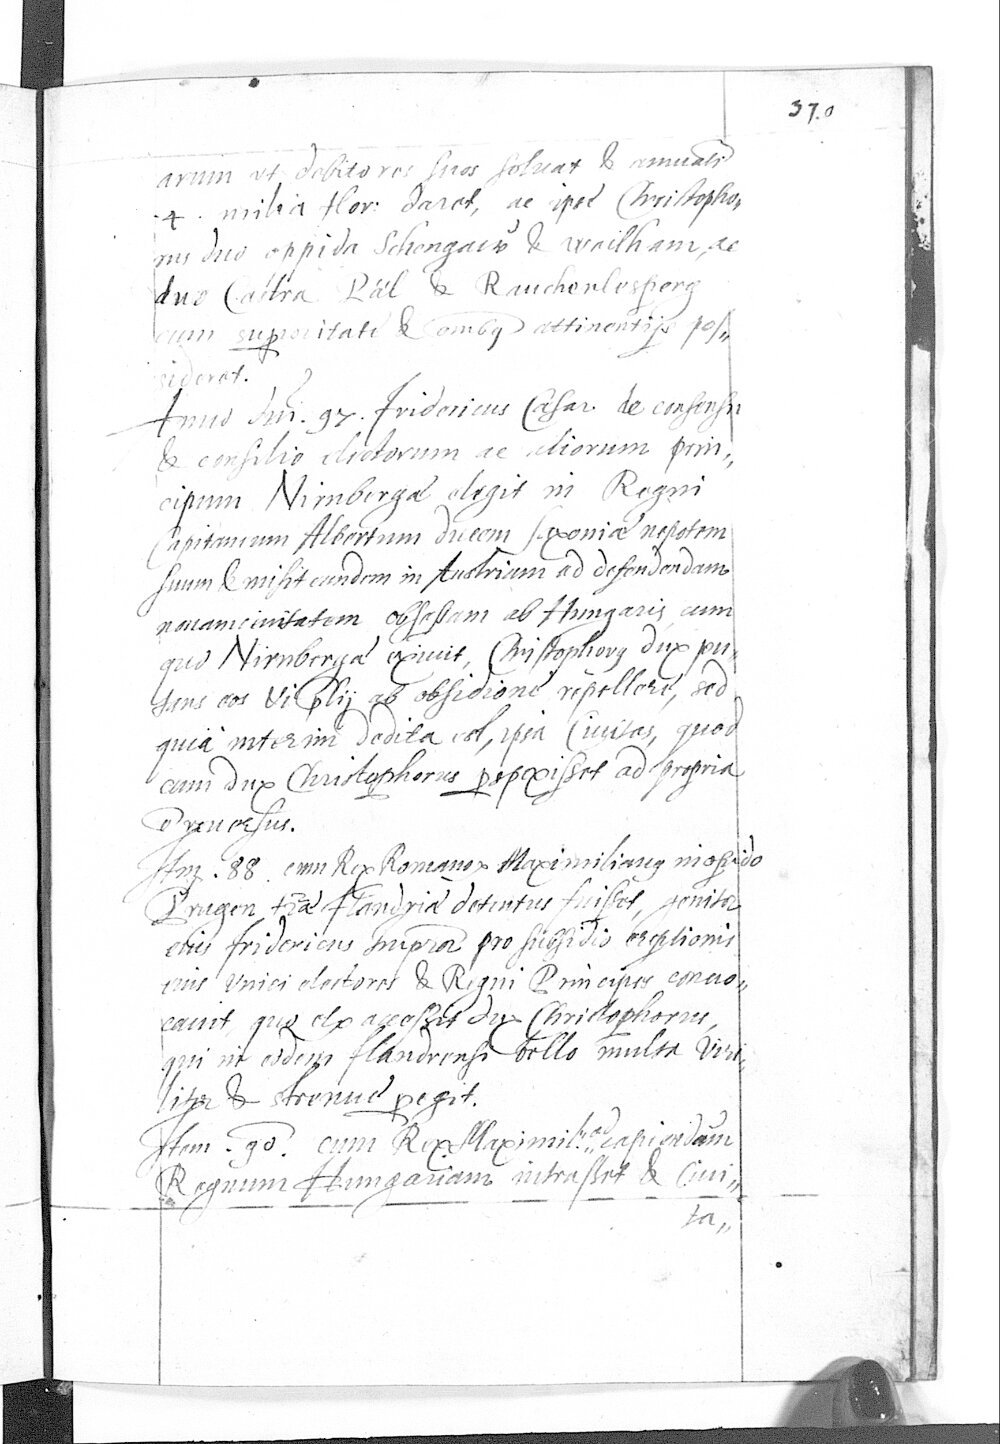 37.0
arum vt debitores suos soluat & annuatī
.4. milia flor: daret, ac ipse Christopho„
rus duo oppida Schongaw & weilham, ac
duo Castra Päl & Rauchenlesperg
cum superioritate & omībq attinentijs pos„
sideret.
Anno dñi. 87. fridericus Cæsar de consensu
& consilio electorum ac aliorum prin„
cipum Nirnbergæ elegit in Regni
Capitaneum Albertum ducem saxoniæ nepotem
suum & misit eundem in Austriam ad defendendam
nouam ciuitatem obsessam ab Hungaris, cum
quo Nirnbergæ exiuit, Christophorq dux pu„
tans eos vi illij ab obsidione repellere, sed
quia interim dedita est, ipsa Ciuitas, quod
cum dux Christophorus perspexisset ad propria
ē reuersus.
Itm. 88. cum Rex Romanor Maximilianq in opido
Prugen. tr̄æ flandriæ detentus fuisset, genitor
eius fridericus Imp̄ator pro subsidio ereptionis
eius vnici electores & Regni Principes conuo„
cauit, quo etp accessit dux Christophorus,
qui in eodem flandrensi bello multa viri„
liter & strenue peregit.
Item .90. cum Rex Maximil: ad capiendam
Regnum Hungariam intrasset & Ciui„
ta„